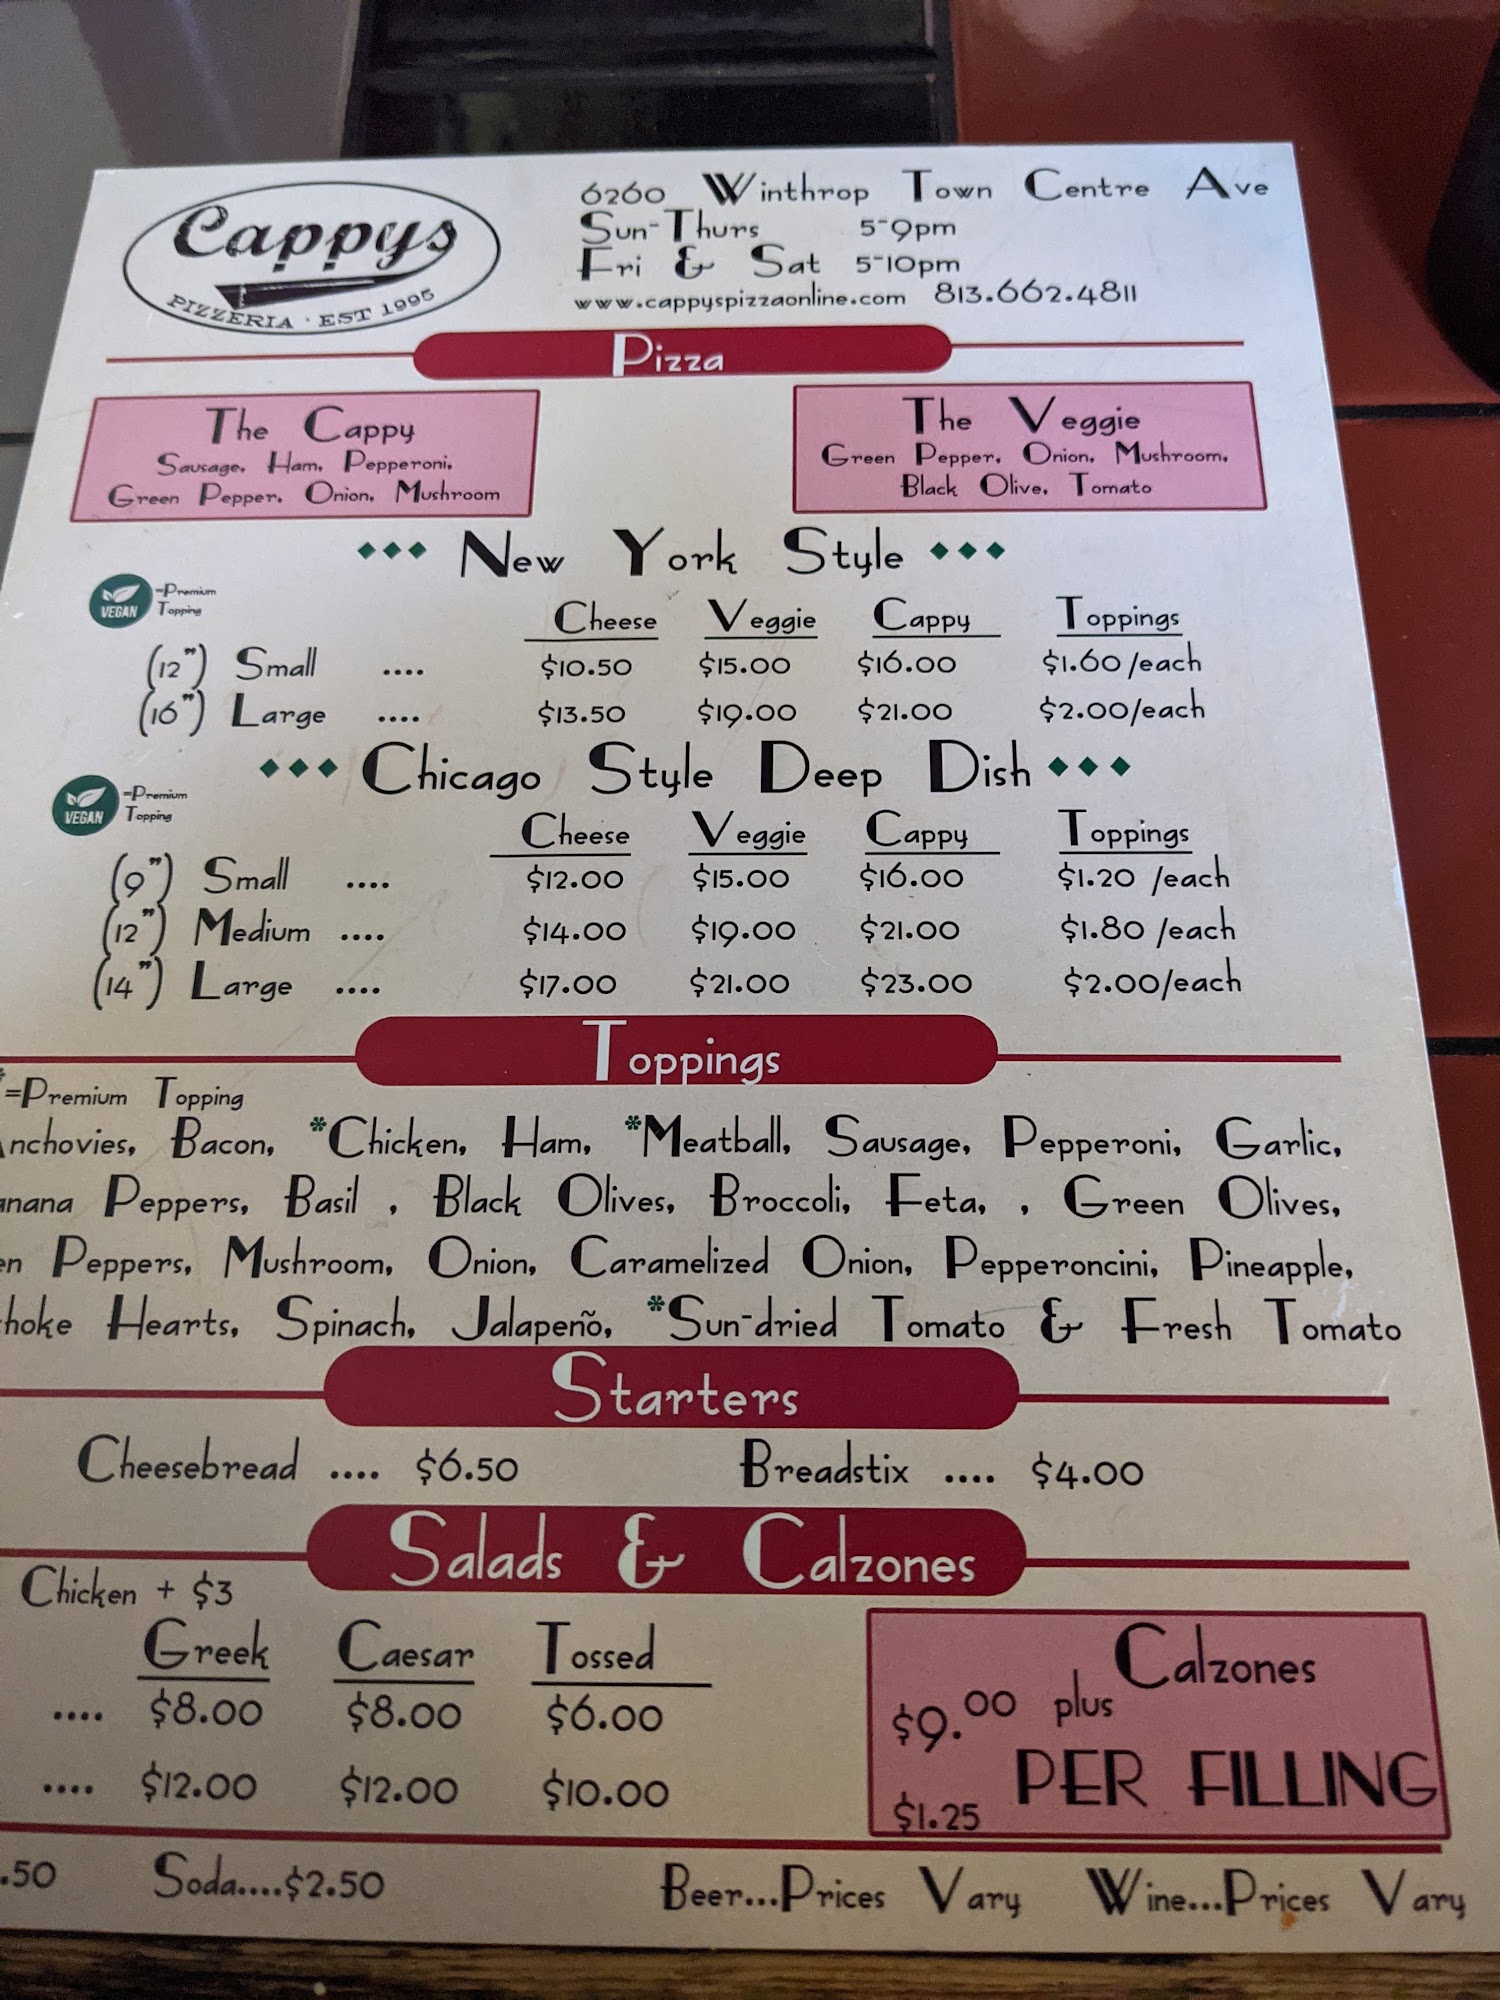 Cappys
PIZZERIA · EST 1995
6260 Winthrop Town Centre Ave
Sun-Thurs 5-9pm
Fri & Sat 5-10pm
www.cappyspizzaonline.com 813.662.4811
Pizza
The Cappy
Sausage, Ham, Pepperoni,
Green Pepper, Onion, Mushroom
The Veggie
Green Pepper, Onion, Mushroom,
Black Olive, Tomato
New York Style
VEGAN =Premium
Topping
Cheese Veggie Cappy Toppings
(12") Small .... $10.50 $15.00 $16.00 $1.60/each
(16") Large .... $13.50 $19.00 $21.00 $2.00/each
Chicago Style Deep Dish
VEGAN =Premium
Topping
Cheese Veggie Cappy Toppings
(9") Small .... $12.00 $15.00 $16.00 $1.20 /each
(12") Medium .... $14.00 $19.00 $21.00 $1.80 /each
(14") Large .... $17.00 $21.00 $23.00 $2.00/each
Toppings
*=Premium Topping
nchovies, Bacon, *Chicken, Ham, *Meatball, Sausage, Pepperoni, Garlic,
anana Peppers, Basil , Black Olives, Broccoli, Feta, , Green Olives,
en Peppers, Mushroom, Onion, Caramelized Onion, Pepperoncini, Pineapple,
choke Hearts, Spinach, Jalapeño, *Sun-dried Tomato & Fresh Tomato
Starters
Cheesebread .... $6.50 Breadstix .... $4.00
Salads & Calzones
Chicken + $3
Greek Caesar Tossed
.... $8.00 $8.00 $6.00
.... $12.00 $12.00 $10.00
Calzones
$9.00 plus
$1.25 PER FILLING
.50 Soda....$2.50 Beer...Prices Vary Wine...Prices Vary